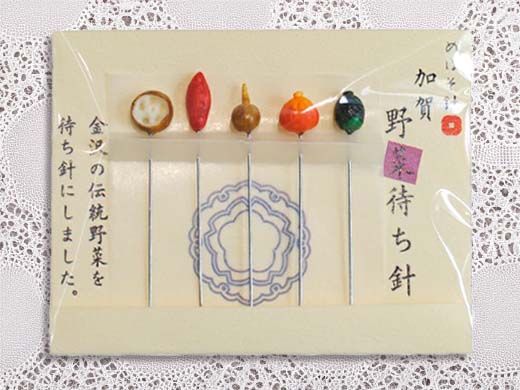 めぼそ針
加賀
野菜
待ち針
金沢の伝統野菜を
待ち針にしました。